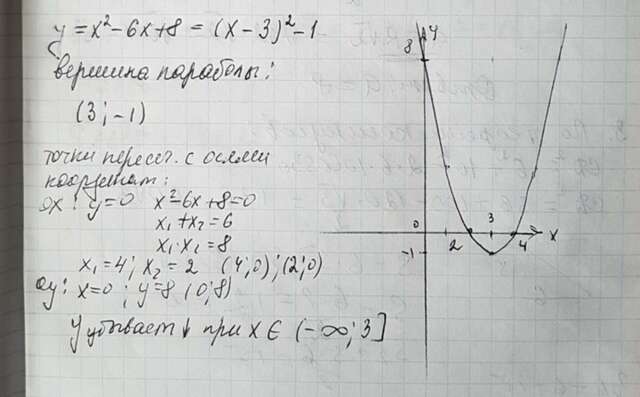 y = x² - 6x + 8 = (x - 3)² - 1
вершина параболы:
(3; -1)
точки пересеч. с осями
координат:
ox: y = 0 x² - 6x + 8 = 0
x₁ + x₂ = 6
x₁ · x₂ = 8
x₁ = 4; x₂ = 2 (4; 0); (2; 0)
oy: x = 0; y = 8 (0; 8)
y убывает ↓ при x ∈ (-∞; 3]
8 y
0 2 3 4 x
-1